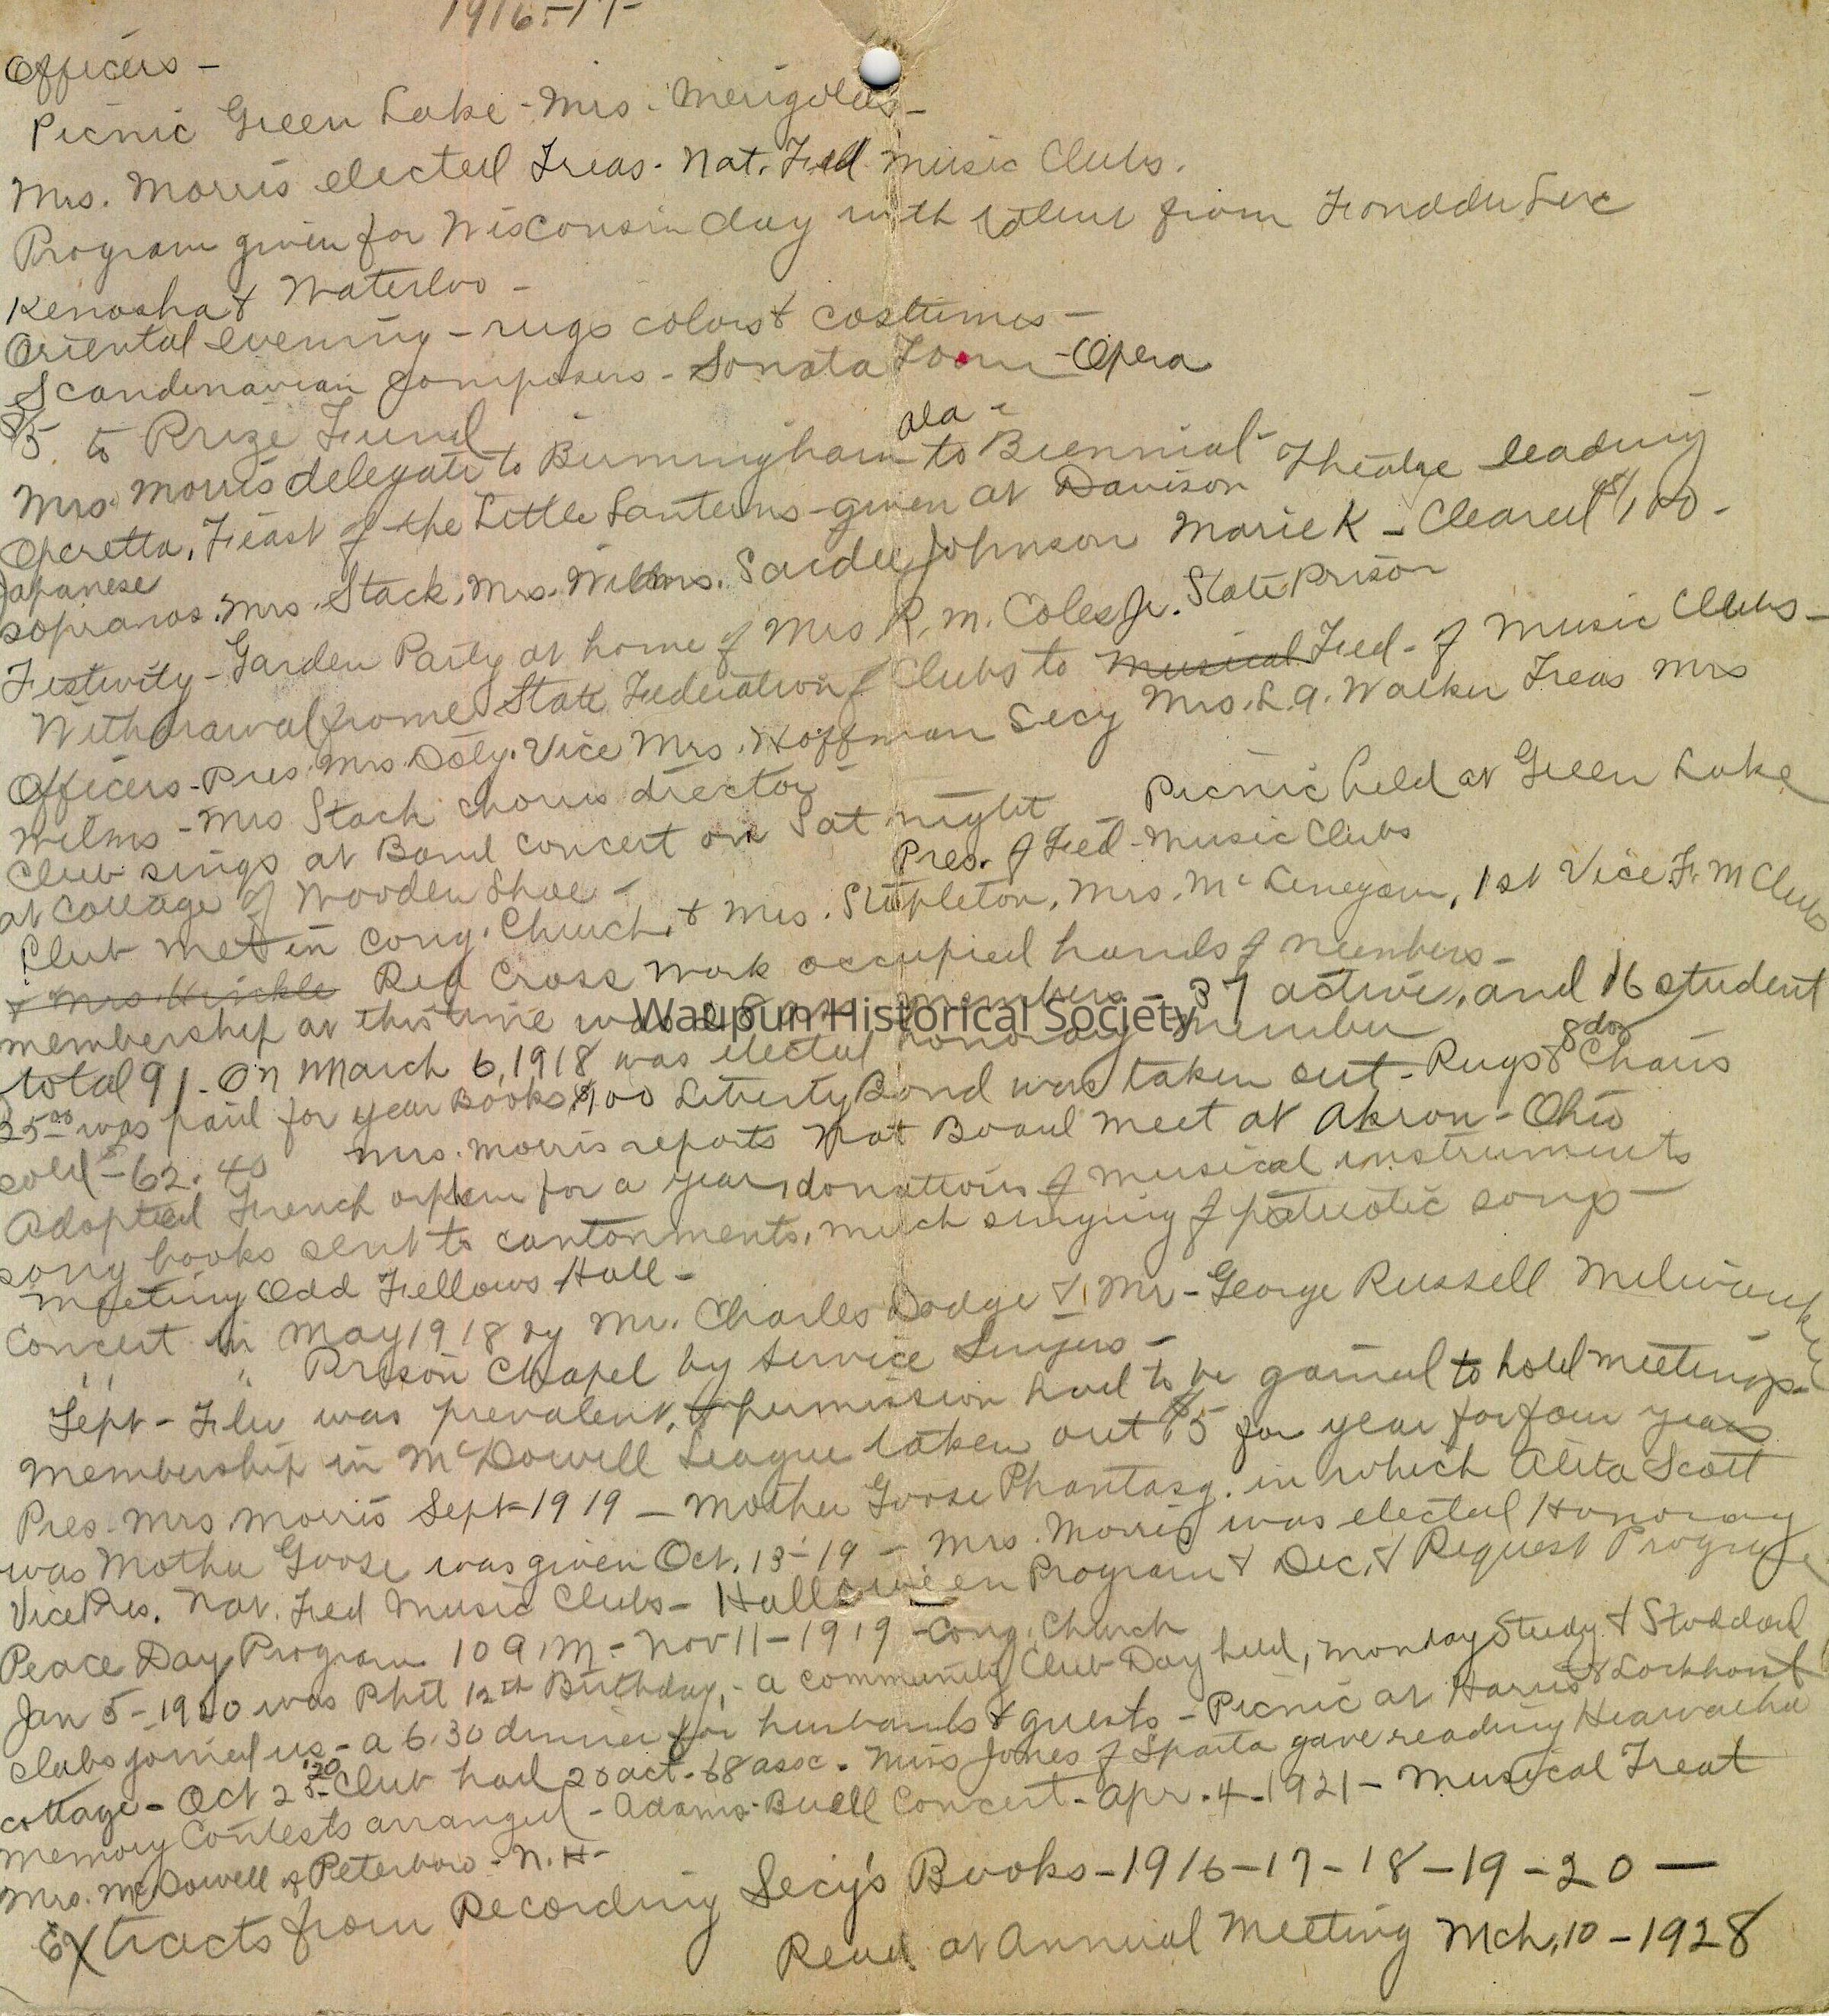 1916-17-
Officers -
Picnic Green Lake - Mrs. Merigolds -
Mrs. Morris elected Treas. Nat. Fed Music Clubs.
Program given for Wisconsin day with talent from Fond du Lac
Kenosha & Waterloo -
Oriental evening - rugs colors & costumes -
Scandinavian Composers - Sonata Form - Opera
$5 to Prize Fund
Mrs. Morris delegate to Birmingham Ala - to Biennial -
Operetta, Feast of the Little Lanterns - given at Davison Theatre leading
Japanese
sopranos. Mrs. Stack, Mrs. Wilms. Saidee Johnson Marie K - Cleared $100 -
Festivity - Garden Party at home of Mrs R. M. Coles Jr. State Prison
Withdrawal from State Federation of Clubs to Musical Fed - of Music Clubs -
Officers - Pres Mrs Doly. Vice Mrs. Hoffman Secy Mrs. L. A. Walker Treas Mrs
Wilms - Mrs Stack chorus director -
Club sings at Band Concert on Sat night - Picnic held at Green Lake
at Cottage of Wooden Shoe - Pres. of Fed - Music Clubs
Club met in Cong. Church, & Mrs. Stapleton, Mrs. McLenegan, 1st Vice F. M Clubs
& Mrs Hinkle Red Cross Work occupied hands of members -
membership at this time was members - 37 active, and 16 student
total 91. On March 6, 1918 was elected honorary member
35.00 was paid for year Books $100 Liberty Bond was taken out - Rugs & 8 doz Chairs
sold - 62.40 Mrs. Morris reports Nat Board meet at Akron - Ohio
Adopted French orphan for a year, donations of musical instruments
song books sent to cantonments, much singing of patriotic songs -
Meeting Odd Fellows Hall -
Concert in May 1918 by Mr. Charles Dodge & Mr - George Russell Milwaukee
" " Prison Chapel by Service Singers -
Sept - Flu was prevalent, & permission had to be gained to hold meetings -
Membership in McDowell League taken out $5 for year for four years
Pres. Mrs Morris Sept - 1919 - Mother Goose Phantasy. in which Alita Scott
was Mother Goose was given Oct. 13 - 19 - Mrs. Morris was elected Honorary
Vice Pres. Nat. Fed Music Clubs - Halloween Program & Dec. & Request Program
Peace Day Program 10 A.M. - Nov 11 - 1919 - Cong. Church
Jan 5 - 1920 was Phil 12th Birthday, - a community Club Day held, Monday Study & Stoddard
Clubs joined us - a 6:30 dinner for husbands & guests - Picnic at Harris & Lockhart
cottage - Oct 25 - '20 Club had 20 act - 68 assc. Miss Jones of Sparta gave reading Hiawatha
Memory Contests arranged - Adams - Buell Concert - Apr. 4 - 1921 - Musical Treat
Mrs. McDowell of Peterboro - N.H -
Extracts from Recording Secy's Books - 1916 - 17 - 18 - 19 - 20 -
Read at Annual Meeting Mch, 10 - 1928
Waupun Historical Society